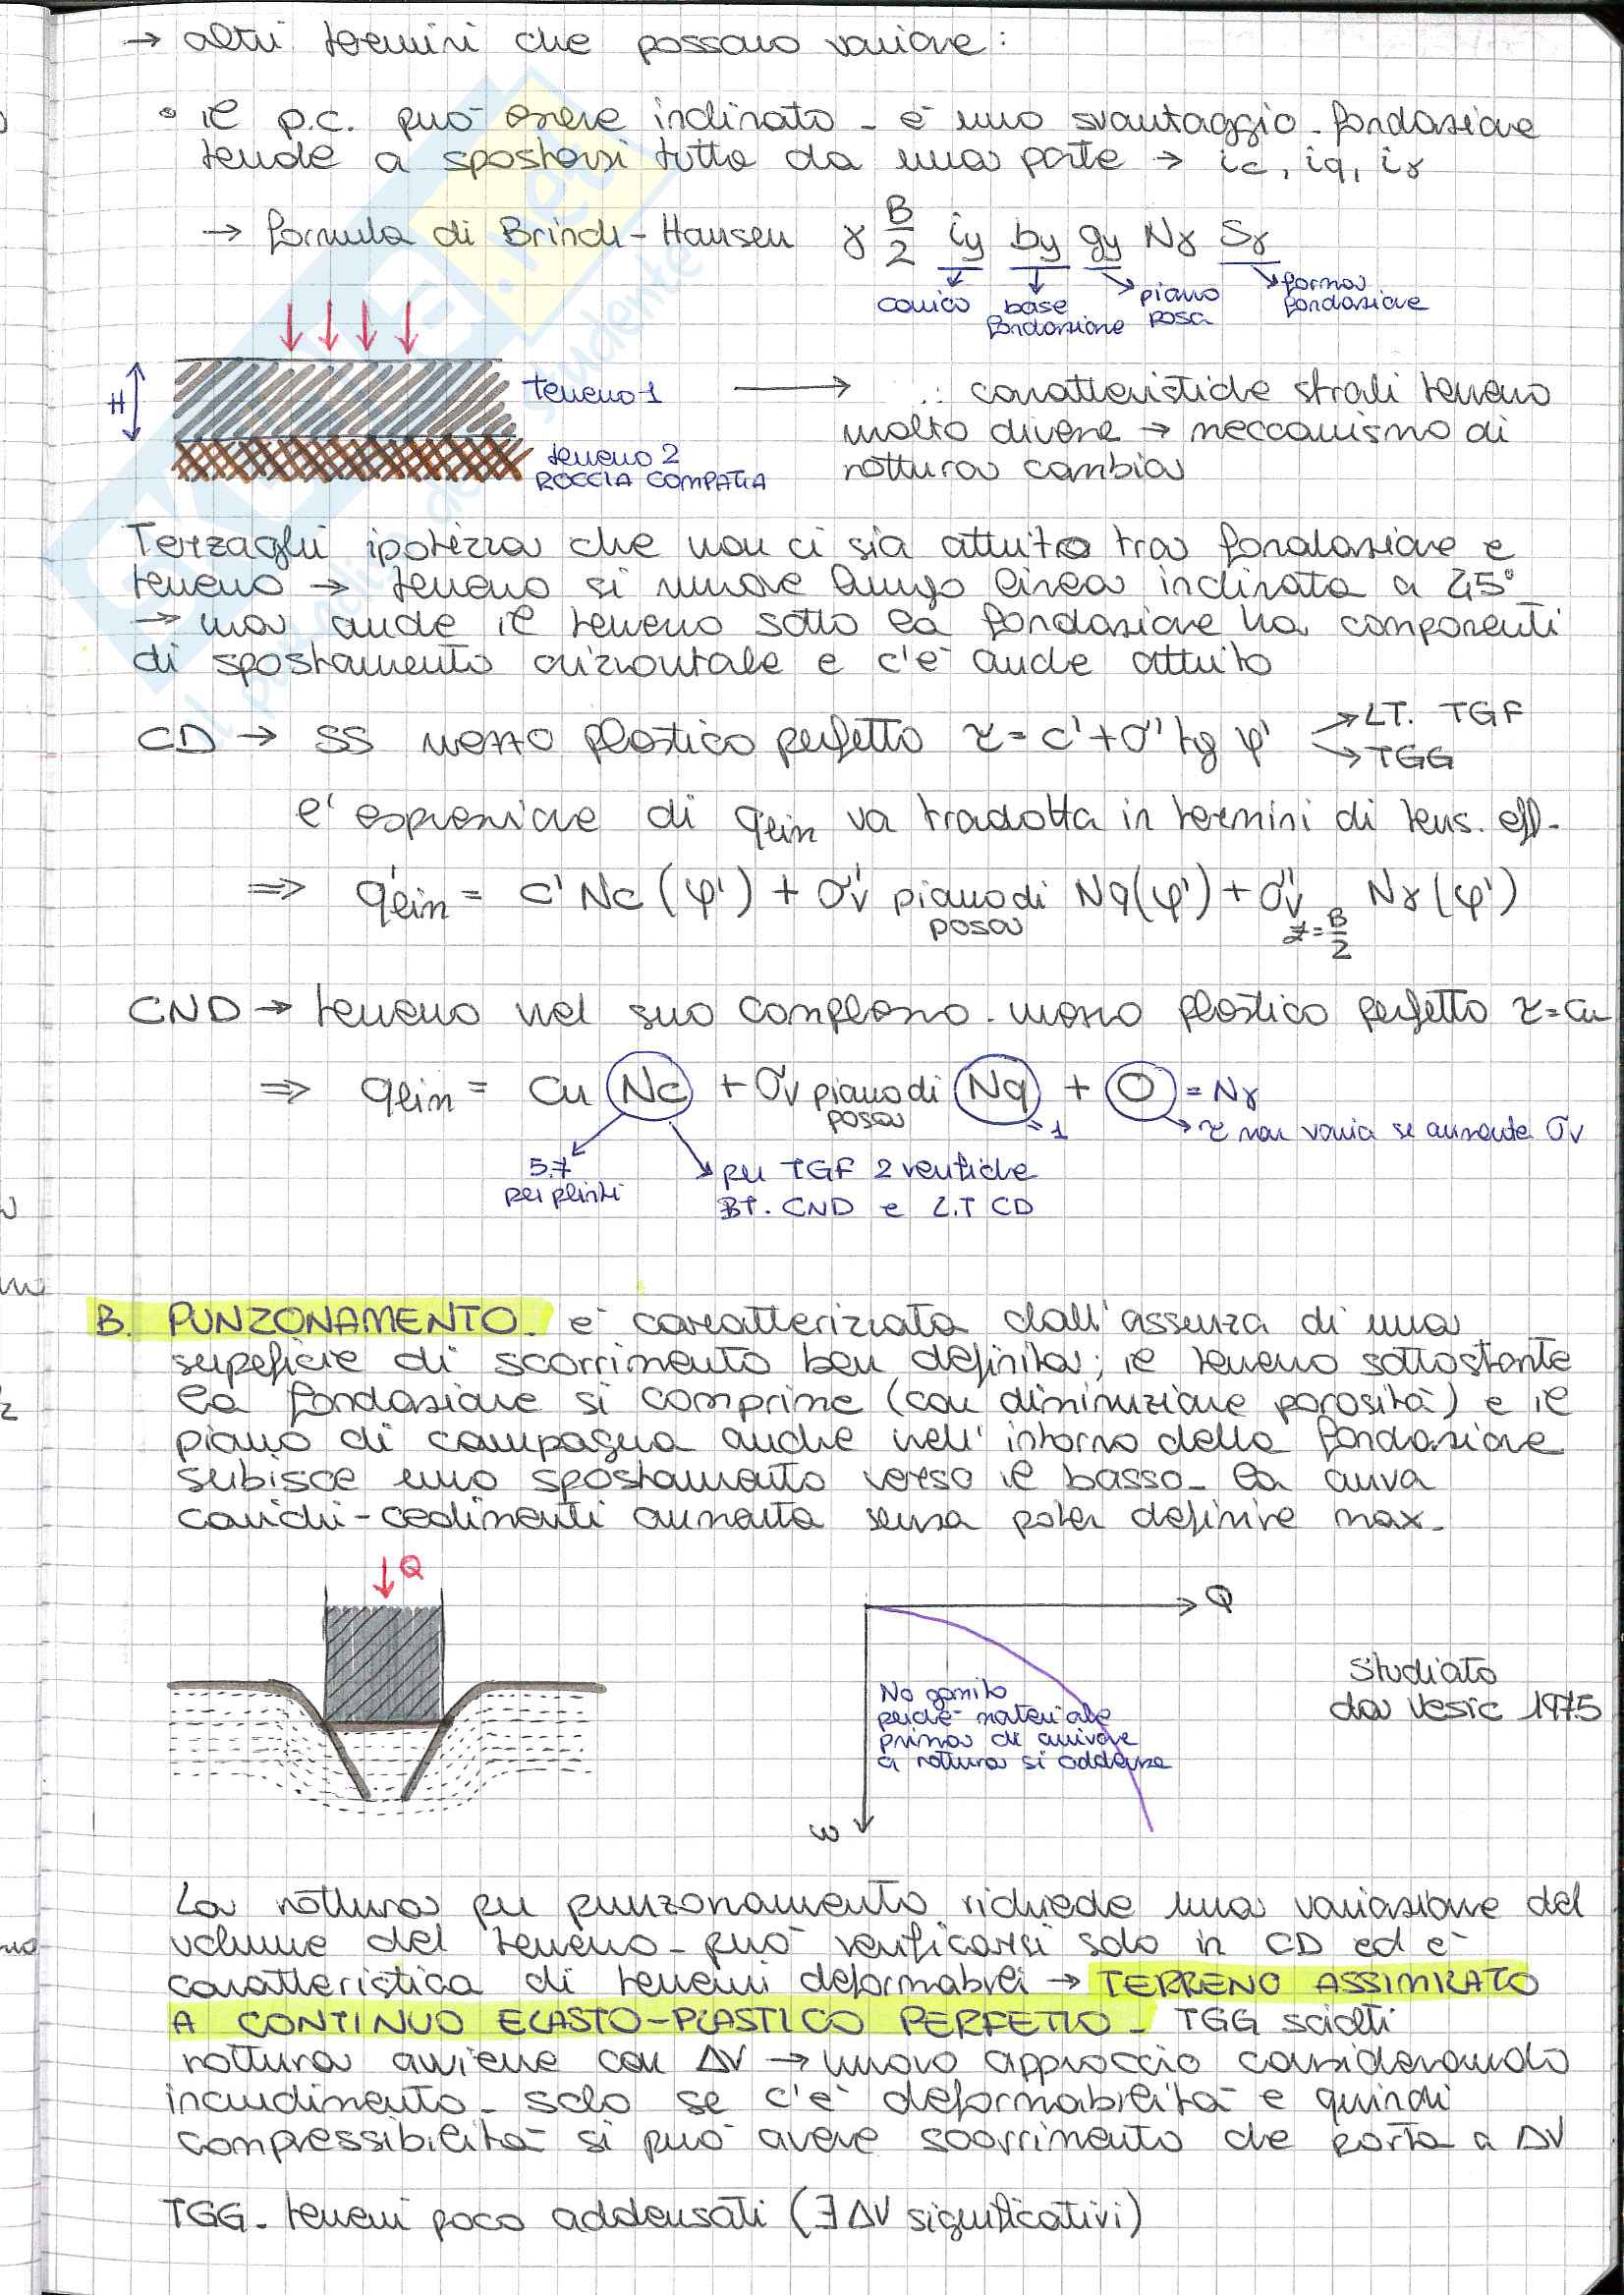 → altri termini che possono variare:
• il p.c. può essere inclinato - è uno svantaggio - fondazione
tende a spostarsi tutta da una parte → ic, iq, iγ
→ formula di Brinch-Hansen γ B/2 iγ bγ gγ Nγ Sγ
carico base fondazione piano posa forma fondazione
H
terreno 1
terreno 2
ROCCIA COMPATTA
→ ∴ caratteristiche strati terreno
molto diverse → meccanismo di
rottura cambia
Terzaghi ipotizza che non ci sia attrito tra fondazione e
terreno → terreno si muove lungo linea inclinata a 45°
→ ma anche il terreno sotto la fondazione ha componenti
di spostamento orizzontale e c'è anche attrito
CD → SS mezzo plastico perfetto τ = c' + σ' tg φ' → LT. TGF
→ TGG
l'espressione di qlim va tradotta in termini di tens. eff.
⇒ q'lim = c' Nc (φ') + σ'v piano di posa Nq(φ') + σ'v z=B/2 Nγ(φ')
CND → terreno nel suo complesso - mezzo plastico perfetto τ = Cu
⇒ qlim = Cu Nc + σv piano di posa Nq + 0 = Nγ
→ 1
→ τ non varia se aumenta σv
5.7
per plinti
per TGF 2 verifiche
BT. CND e L.T CD
B. PUNZONAMENTO - è caratterizzata dall'assenza di una
supeficie di scorrimento ben definita; il terreno sottostante
la fondazione si comprime (con diminuzione porosità) e il
piano di campagna anche nell'intorno della fondazione
subisce uno spostamento verso il basso - la curva
carichi-cedimenti aumenta senza poter definire max.
Q
Q
No gomito
perché materiale
prima di arrivare
a rottura si addensa
w
Studiato
da Vesic 1975
La rottura per punzonamento richiede una variazione del
volume del terreno - può verificarsi solo in CD ed è
caratteristica di terreni deformabili → TERRENO ASSIMILATO
A CONTINUO ELASTO-PLASTICO PERFETTO - TGG sciolti
rottura avviene con ΔV → nuovo approccio considerando
incrudimento - solo se c'è deformabilità e quindi
compressibilità si può avere scorrimento che porta a ΔV
TGG - terreni poco addensati (∃ ΔV significativi)